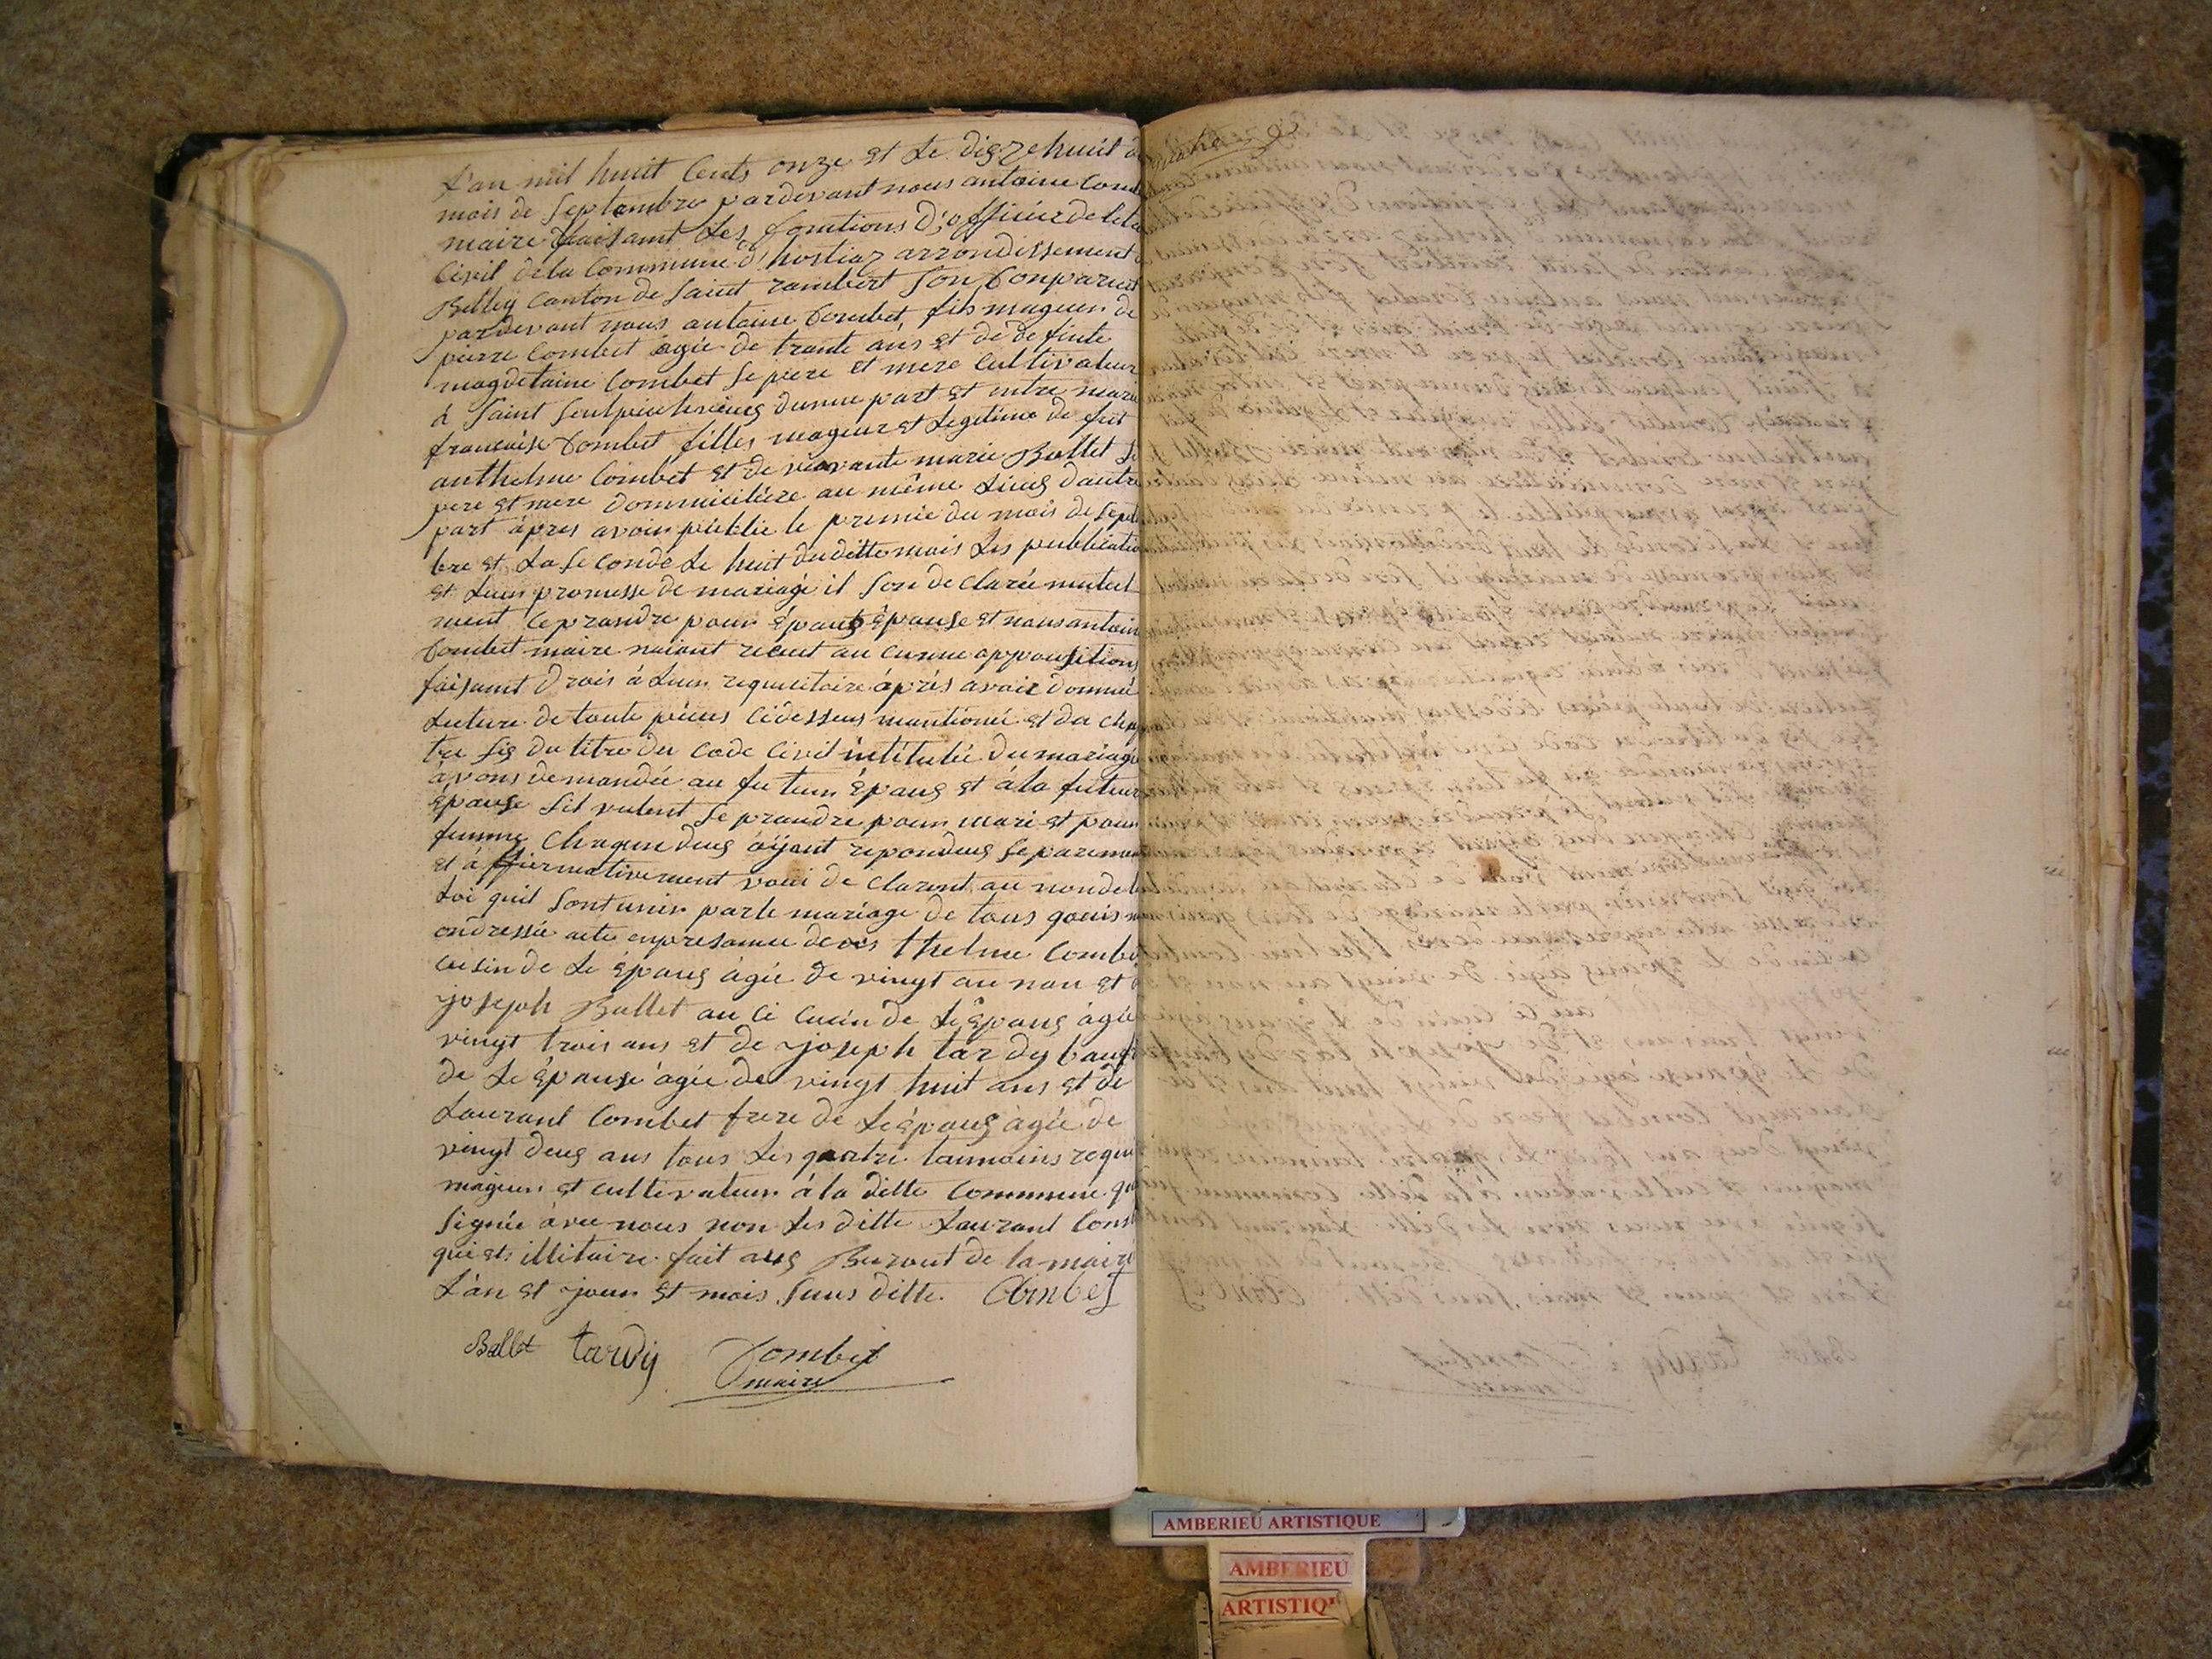 L'an mil huit Cents onze et Le dizehuit d
mois de Septembre pardevant nous antoine Com
maire faisant Les fontions D'officier de l'eta
Civil dela Commune d'hostiaz arrondissement
Belley Canton de Saint rambert Son Conparu
pardevant nous antoine Combet fils mageur de
pierre Combet agée de trante ans et de defunte
magdelaine Combet Se pere et mere Cultivateur
à Saint dunne part et entre marie
francoise Combet filles mageur et Legitime de
anthelme Combet et de vivante marie Ballet
pere et mere Dommicilière au même Lieus dautre
part âpres avoir publié le premie du mois de Sept
bre et La Seconde Le huit duditte mois Les publicatio
et Leur promesse de mariage il Son de Clarée mutuel
ment Ceprandre pour épous épouse et nous antoin
Combet maire naiant recut au Cunne oppousitions
faisant Drois à Leur requisitoire âprés avoir Donneé
Lecture de toute pieces Cidessus mantioneé et du Chap
tre Sis du titre du Code Civil intitulée du mariage
âvons demandée au futeur Épous et à la futeur
épouse Sil vulent Se prandre pour mari et pour
femme Chaqun deus aÿant repondus Separemen
et à ffiermativement de Claront au nonde la
Loi quil Sont unis parle mariage de tous qouis
ondressée acte enpresance de thelme Combet
Cusin de Le Épous âgée de vingt au nou et
joseph Ballet au Ci Cusin de Le Épous âgée
vingt trois ans et de joseph tardy Bauf
de Le Épouse âgée de vingt huit ans et de
Laurant Combet frere de Leépous âgée de
vingt deus ans tous Les quatre taimoins requi
mageur et Cultivateur à la ditte Commune qu
Signée avec nous non Les ditte Laurant Com
qui et illitaire fait aus Buraut de la maire
L'àn et jour et mois Sus ditte. Combet
Ballet tardy Combet
maire
AMBERIEU ARTISTIQUE
AMBERIEU
ARTISTIQ